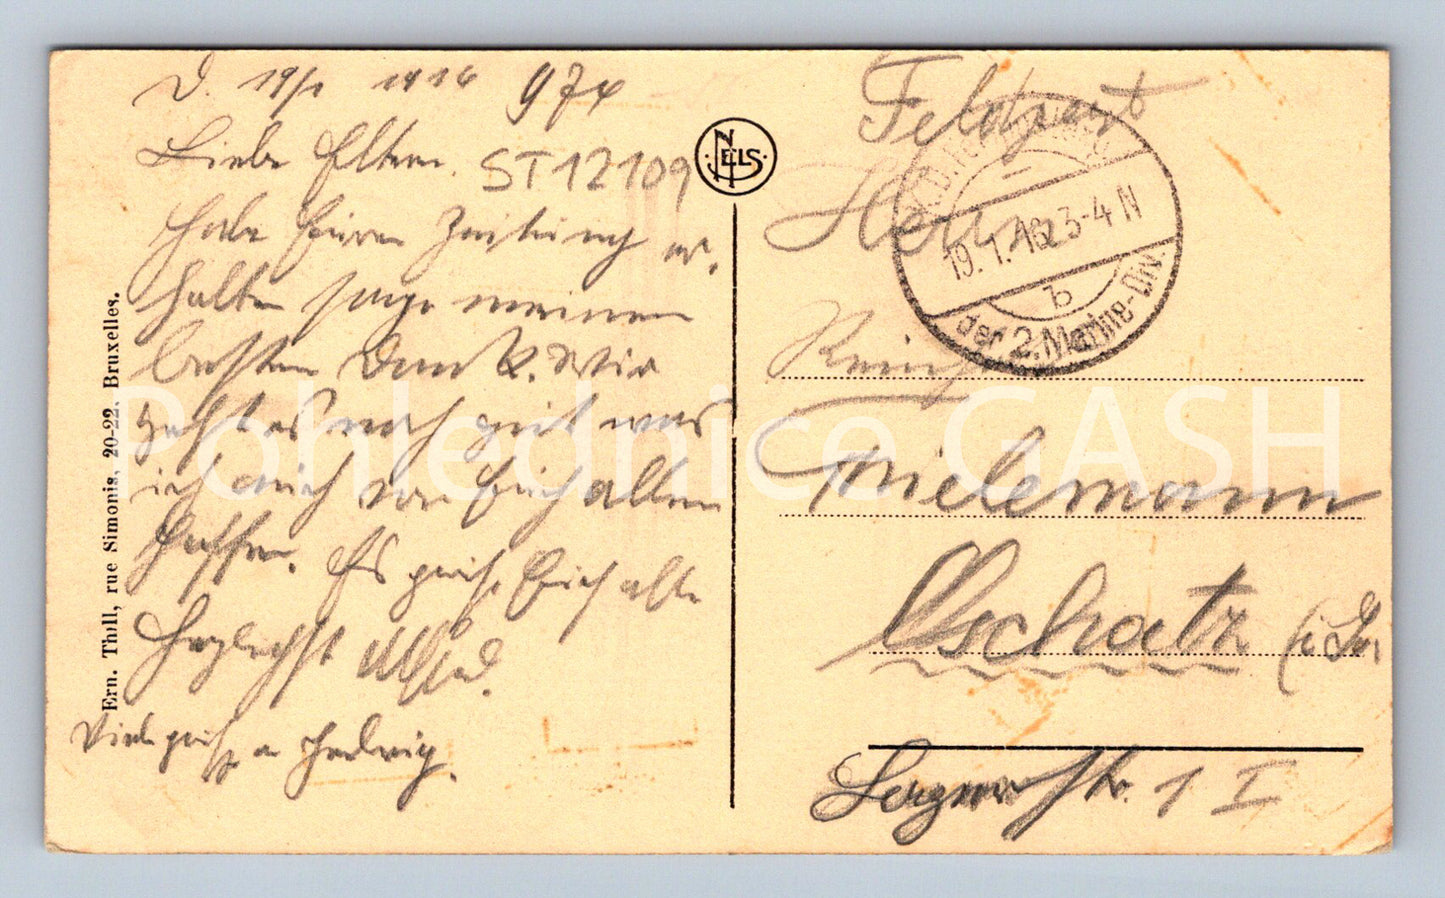 D. 19/1 1916 974
Liebe Eltern. ST12109
Habe Euren Zeitung er-
halten sage meinen
besten Dank. Wir
geht es noch gut was
ich auch von Euch allen
hoffe. Es grüßt Euch alle
Herzlichst
Viele grüße a Hedwig.
Ern. Thill, rue Simonis, 20-22, Bruxelles.
NELS
Feldpost
Herrn
19.1.16 3-4 N
b
der 2. Marine-Div.
Thielemann
Oschatz (i Sa
str. 1 I
Pohlednice GASH